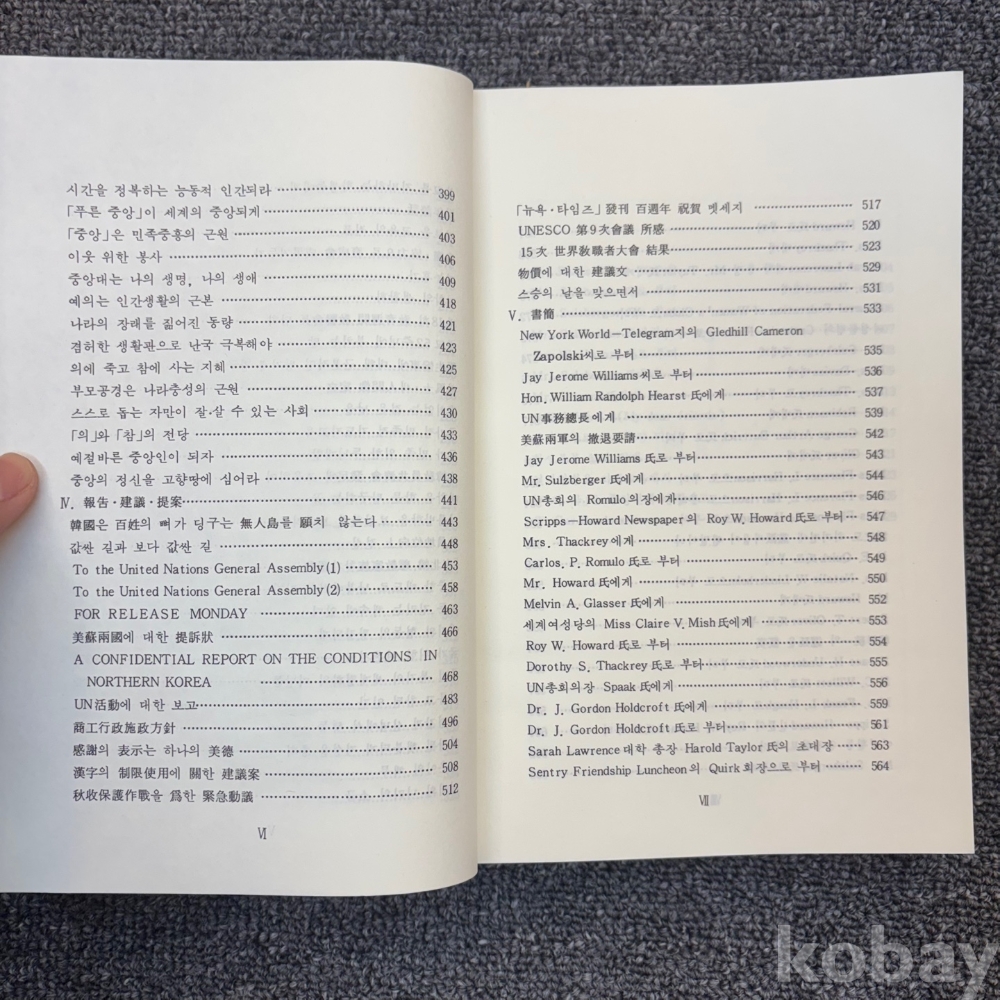 시간을 정복하는 능동적 인간되라 399
「푸른 중앙」이 세계의 중앙되게 401
「중앙」은 민족중흥의 근원 403
이웃 위한 봉사 406
중앙대는 나의 생명, 나의 생애 409
예의는 인간생활의 근본 418
나라의 장래를 짊어진 동량 421
겸허한 생활관으로 난국 극복해야 423
의에 죽고 참에 사는 지혜 425
부모공경은 나라충성의 근원 427
스스로 돕는 자만이 잘·살 수 있는 사회 430
「의」와 「참」의 전당 433
예절바른 중앙인이 되자 436
중앙의 정신을 고향땅에 심어라 438
Ⅳ. 報告·建議·提案 441
韓國은 百姓의 뼈가 딩구는 無人島를 願치 않는다 443
값싼 길과 보다 값싼 길 448
To the United Nations General Assembly(1) 453
To the United Nations General Assembly(2) 458
FOR RELEASE MONDAY 463
美蘇兩國에 대한 提訴狀 466
A CONFIDENTIAL REPORT ON THE CONDITIONS IN
NORTHERN KOREA 468
UN活動에 대한 보고 483
商工行政施政方針 496
感謝의 表示는 하나의 美德 504
漢字의 制限使用에 關한 建議案 508
秋收保護作戰을 爲한 緊急動議 512
Ⅵ
「뉴욕·타임즈」發刊 百週年 祝賀 멧세지 517
UNESCO 第9次會議 所感 520
15次 世界敎職者大會 結果 523
物價에 대한 建議文 529
스승의 날을 맞으면서 531
Ⅴ. 書簡 533
New York World—Telegram지의 Gledhill Cameron
Zapolski씨로 부터 535
Jay Jerome Williams씨로 부터 536
Hon. William Randolph Hearst 氏에게 537
UN事務總長에게 539
美蘇兩軍의 撤退要請 542
Jay Jerome Williams 氏로 부터 543
Mr. Sulzberger 氏에게 544
UN총회의 Romulo 의장에게 546
Scripps—Howard Newspaper의 Roy W. Howard氏로 부터 547
Mrs. Thackrey에게 548
Carlos. P. Romulo 氏로 부터 549
Mr. Howard 氏에게 550
Melvin A. Glasser 氏에게 552
세계여성당의 Miss Claire V. Mish氏에게 553
Roy W. Howard 氏로 부터 554
Dorothy S. Thackrey 氏로 부터 555
UN총회의장 Spaak 氏에게 556
Dr. J. Gordon Holdcroft 氏에게 559
Dr. J. Gordon Holdcroft 氏로 부터 561
Sarah Lawrence대학 총장 Harold Taylor 氏의 초대장 563
Sentry Friendship Luncheon의 Quirk 회장으로 부터 564
Ⅶ
kobay